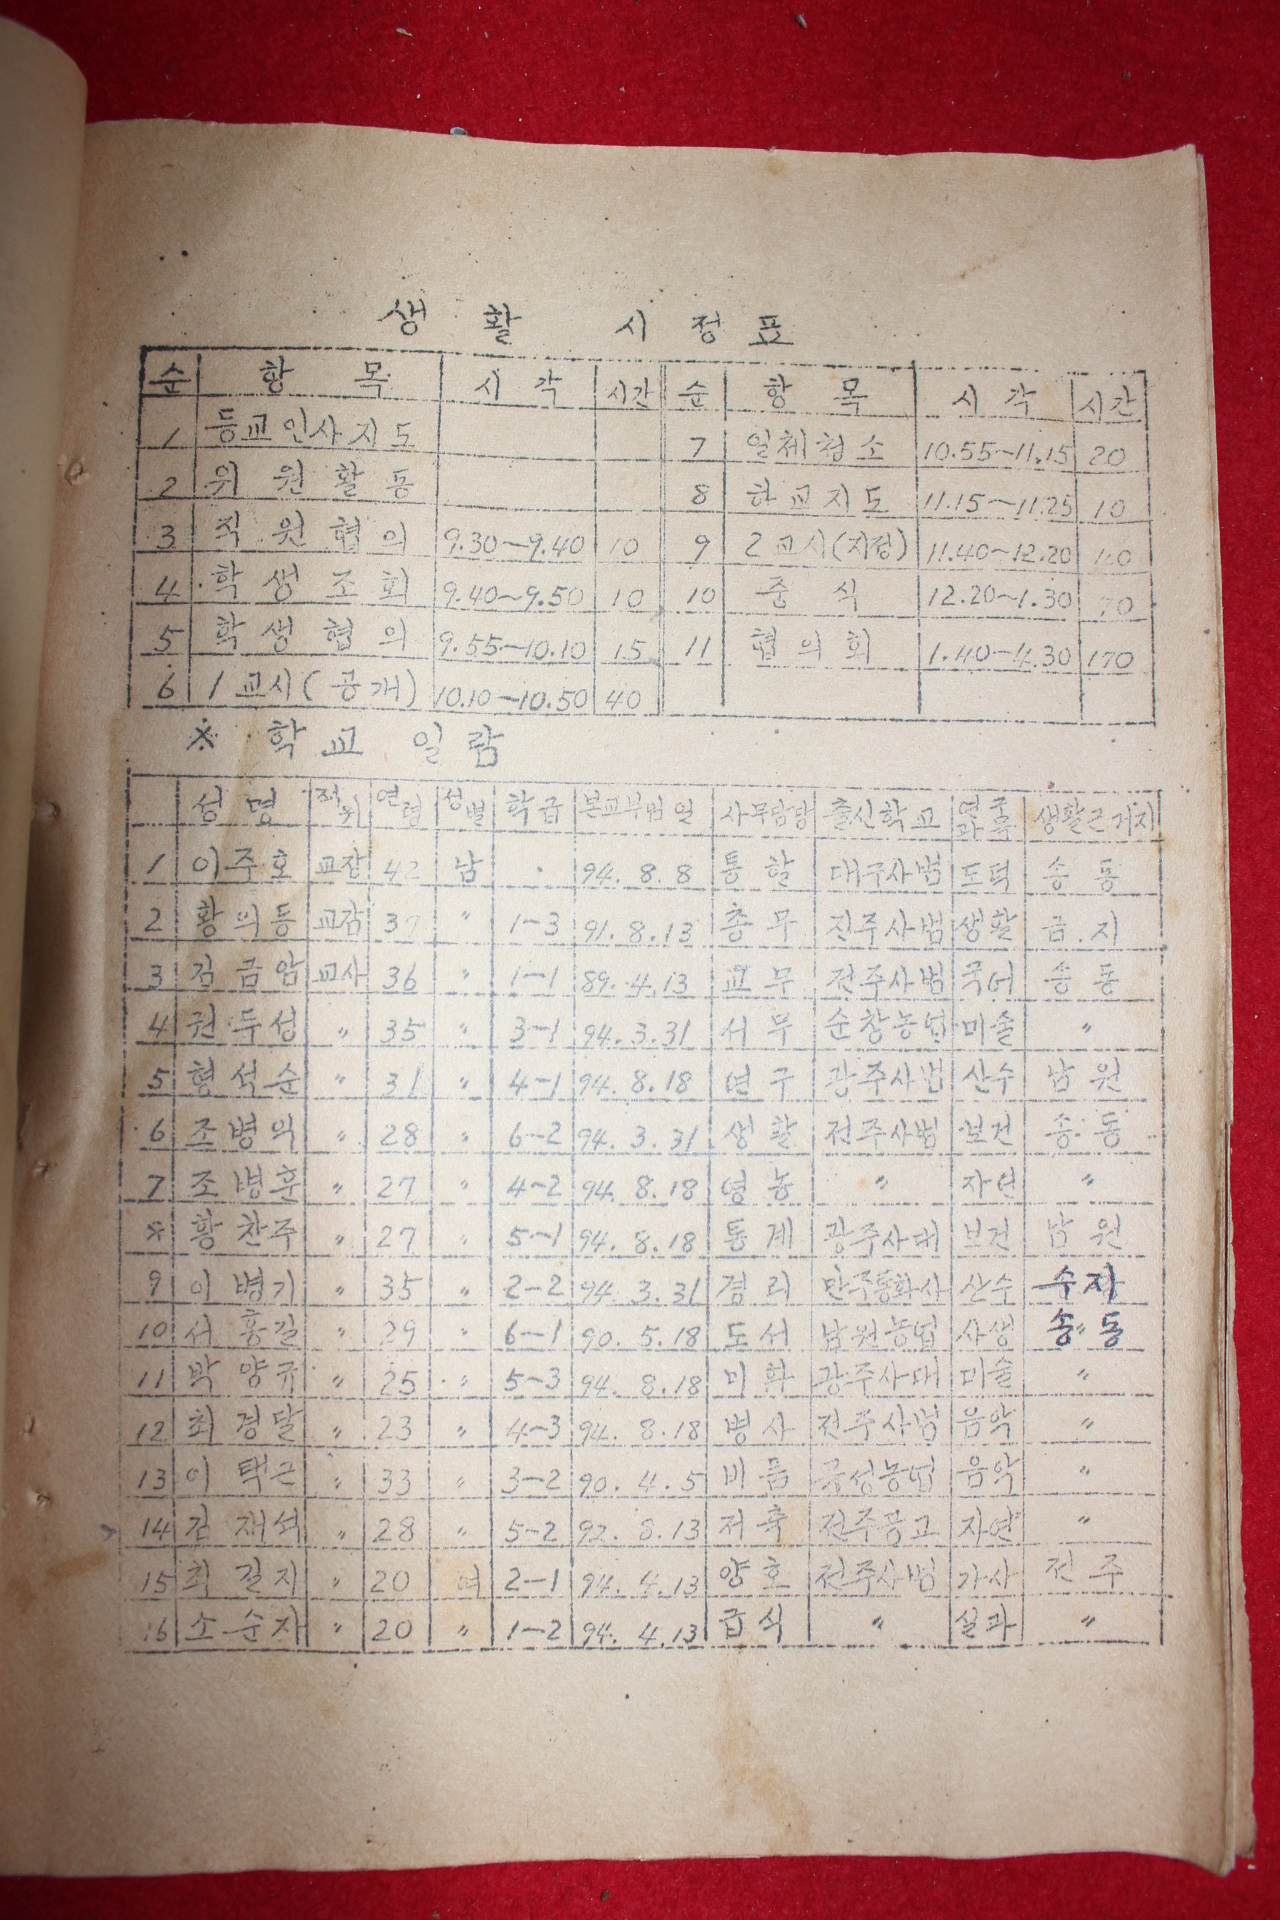 생활 시정표
순 항목 시각 시간 순 항목 시각 시간
1 등교인사지도 7 일체청소 10.55~11.15 20
2 위원활동 8 하교지도 11.15~11.25 10
3 직원협의 9.30~9.40 10 9 2교시(지정) 11.40~12.20
4 학생조회 9.40~9.50 10 10 중식 12.20~1.30 70
5 학생협의 9.55~10.10 15 11 협의회 1.40~4.30 170
6 1교시(공개) 10.10~10.50 40
※ 학교일람
성명 직위 연령 성별 학급 본교부임일 사무담당 출신학교 생활근거지
1 이주호 교장 42 남 · 94.8.8 통할 대구사범 도덕 송동
2 황의동 교감 37 〃 1-3 91.8.13 총무 전주사범 생활 금지
3 김금암 교사 36 〃 1-1 89.4.13 교무 전주사범 국어 송동
4 권두성 〃 35 〃 3-1 94.3.31 서무 순창농업 미술 〃
5 형석순 〃 31 〃 4-1 94.8.18 연구 광주사범 산수 남원
6 조병익 〃 28 〃 6-2 94.3.31 생활 전주사범 보건 송동
7 조병훈 〃 27 〃 4-2 94.8.18 영농 〃 자연 〃
※ 황찬주 〃 27 〃 5-1 94.8.18 통계 광주사대 보건 남원
9 이병기 〃 35 〃 2-2 94.3.31 경리 산수 수지
10 서홍길 〃 29 〃 6-1 90.5.18 도서 남원농업 사생 송동
11 박양규 〃 25 〃 5-3 94.8.18 미화 광주사대 미술 〃
12 최경달 〃 23 〃 4-3 94.8.18 병사 전주사범 음악 〃
13 이택근 〃 33 〃 3-2 90.4.5 비품 곡성농업 음악 〃
14 김재석 〃 28 〃 5-2 92.8.13 저축 전주공고 자연 〃
15 최길자 〃 20 여 2-1 94.4.13 양호 전주사범 가사 전주
16 소순자 〃 20 〃 1-2 94.4.13 급식 〃 실과 〃